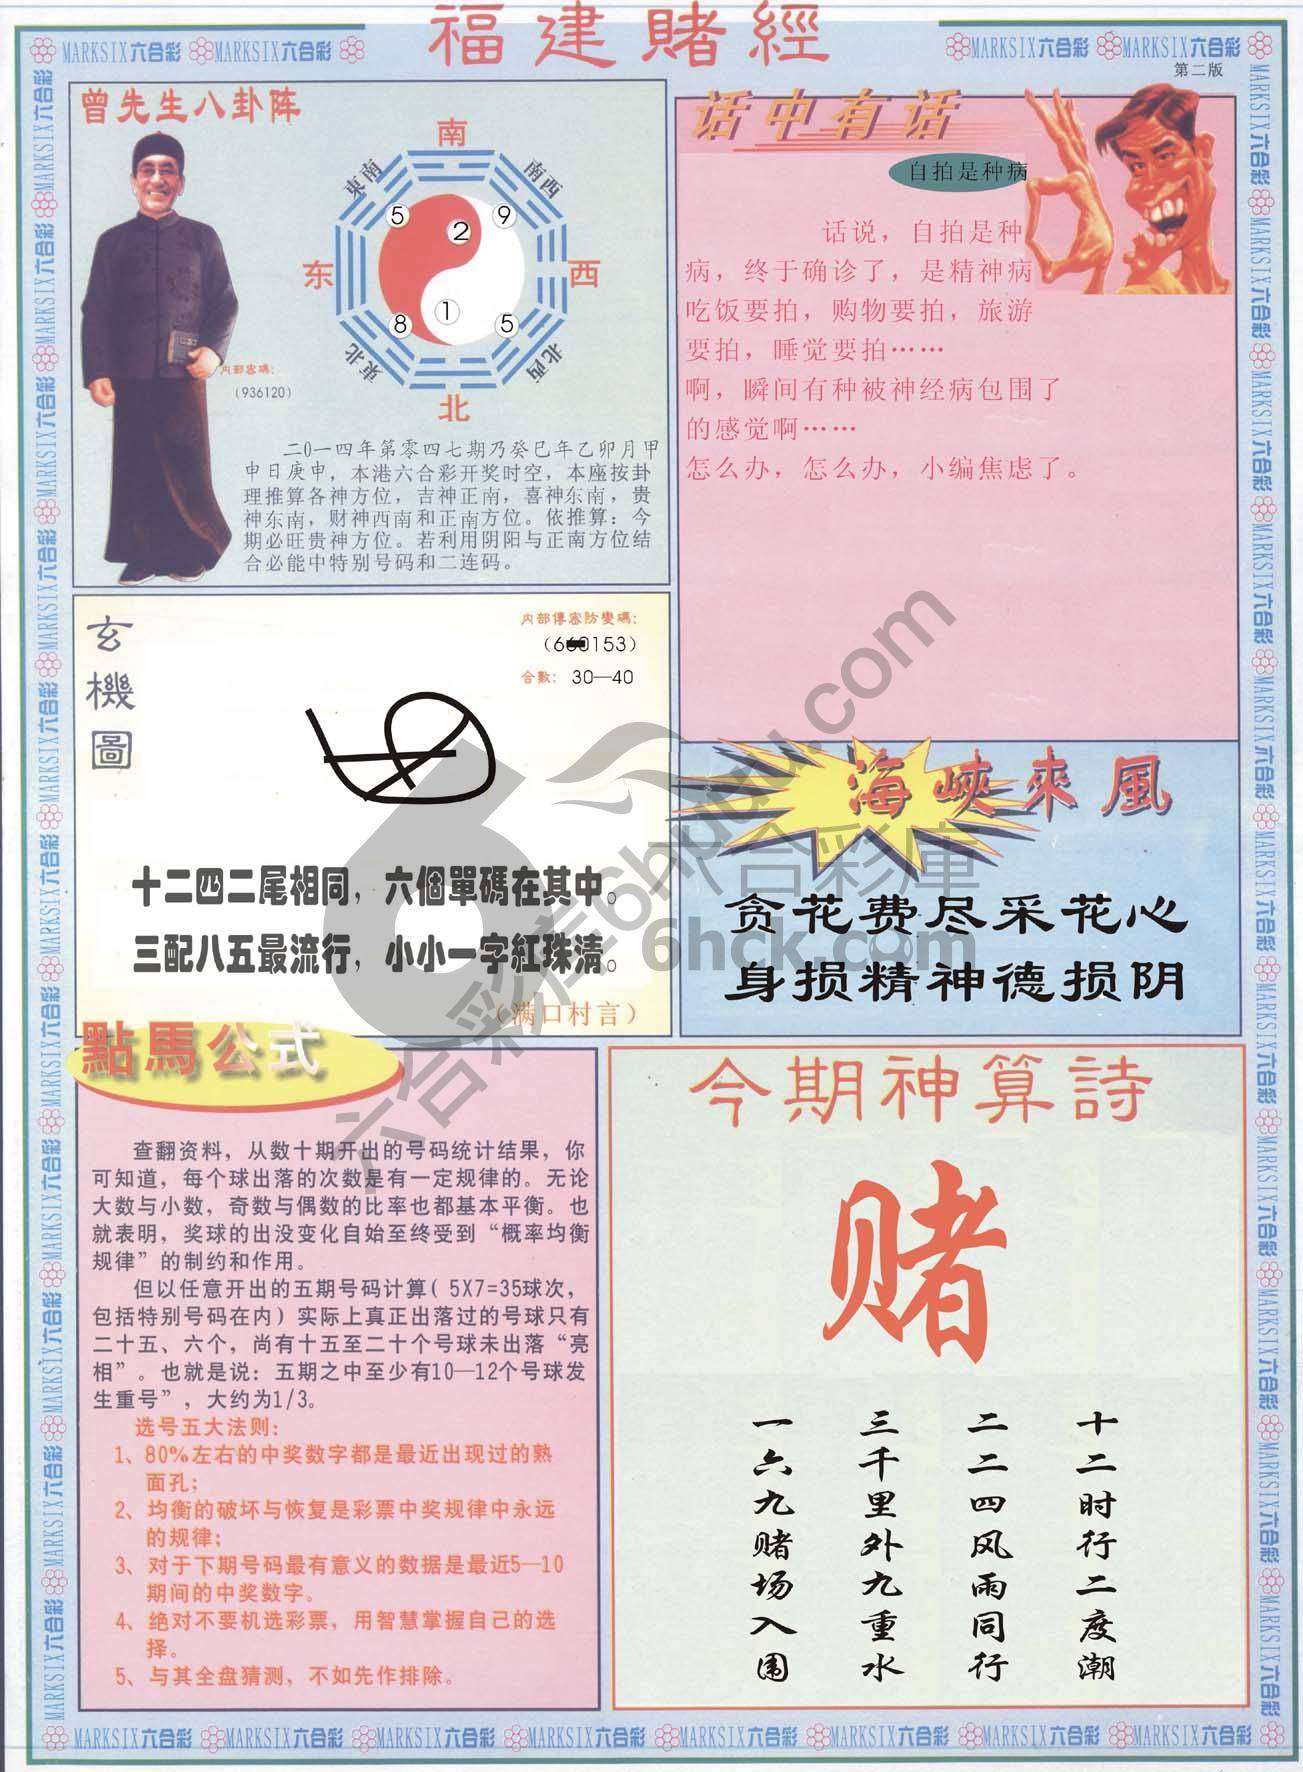 福建賭經
MARKSIX六合彩 MARKSIX六合彩
MARKSIX六合彩 MARKSIX六合彩
第二版
曾先生八卦阵
南
東南
南西
5
2
9
东
西
8
1
5
東北
北西
北
内部密碼:
(936120)
二0一四年第零四七期乃癸巳年乙卯月甲
申日庚申，本港六合彩开奖时空，本座按卦
理推算各神方位，吉神正南，喜神东南，贵
神东南，财神西南和正南方位。依推算：今
期必旺贵神方位。若利用阴阳与正南方位结
合必能中特别号码和二连码。
话中有话
自拍是种病
话说，自拍是种
病，终于确诊了，是精神病
吃饭要拍，购物要拍，旅游
要拍，睡觉要拍……
啊，瞬间有种被神经病包围了
的感觉啊……
怎么办，怎么办，小编焦虑了。
玄機圖
内部傳密防變碼:
合數: 30—40
十二四二尾相同，六個單碼在其中。
三配八五最流行，小小一字紅珠清。
（满口村言）
海峽來風
贪花费尽采花心
身损精神德损阴
點馬公式
查翻资料，从数十期开出的号码统计结果，你
可知道，每个球出落的次数是有一定规律的。无论
大数与小数，奇数与偶数的比率也都基本平衡。也
就表明，奖球的出没变化自始至终受到“概率均衡
规律”的制约和作用。
但以任意开出的五期号码计算( 5X7=35球次，
包括特别号码在内）实际上真正出落过的号球只有
二十五、六个，尚有十五至二十个号球未出落“亮
相”。也就是说：五期之中至少有10—12个号球发
生重号”，大约为1/3。
选号五大法则:
1、80%左右的中奖数字都是最近出现过的熟
面孔;
2、均衡的破坏与恢复是彩票中奖规律中永远
的规律;
3、对于下期号码最有意义的数据是最近5—10
期间的中奖数字。
4、绝对不要机选彩票，用智慧掌握自己的选
择。
5、与其全盘猜测，不如先作排除。
今期神算詩
赌
十二时行二度潮
二二四风雨同行
三千里外九重水
一六九赌场入围
六合彩库6hdudu.com
六合彩庫
6hck.com
MARKSIX六合彩 MARKSIX六合彩 MARKSIX六合彩 MARKSIX六合彩 MARKSIX六合彩 MARKSIX六合彩 MARKSIX六合彩 MARKSIX六合彩